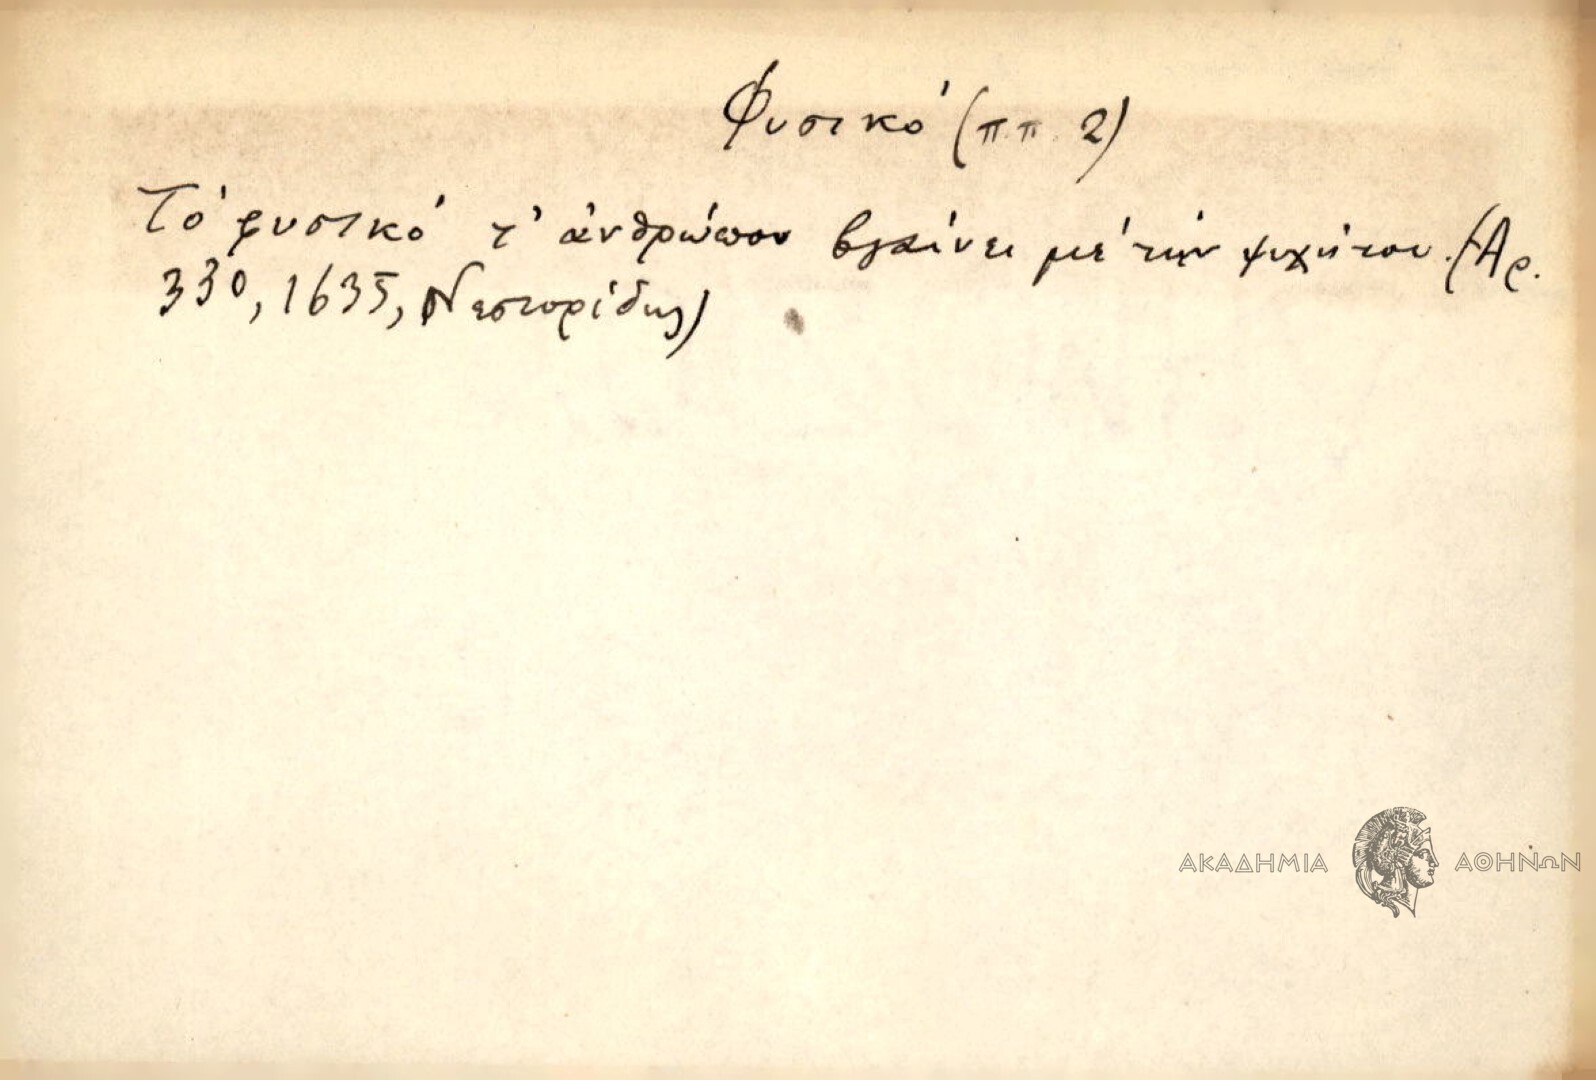 Φυσικό (π.π. 2)
Τό φυσικό τ' ἀνθρώπου βγαίνει μέ τήν ψυχή του. (Αρ.
330, 1635, Νεστορίδης)
ΑΚΑΔΗΜΙΑ ΑΘΗΝΩΝ